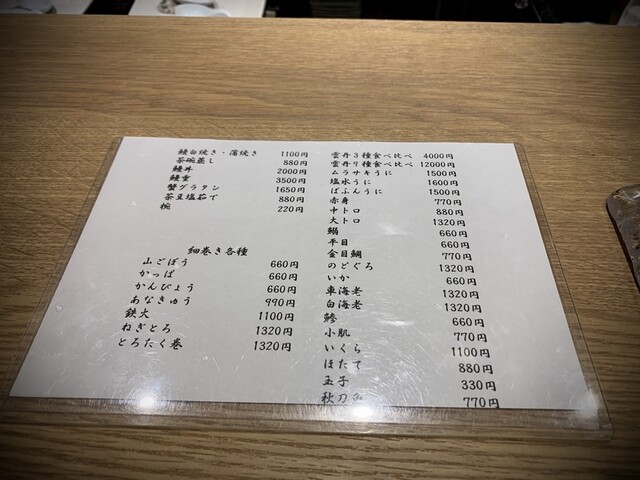 鰻白焼き・蒲焼き 1100円
茶碗蒸し 880円
鰻丼 2000円
鰻重 3500円
蟹グラタン 1650円
茶豆塩茹で 880円
椀 220円
細巻き各種
山ごぼう 660円
かっぱ 660円
かんぴょう 660円
あなきゅう 990円
鉄火 1100円
ねぎとろ 1320円
とろたく巻 1320円
雲丹3種食べ比べ 4000円
雲丹7種食べ比べ 12000円
ムラサキうに 1500円
塩水うに 1600円
ばふんうに 1500円
赤身 770円
中トロ 880円
大トロ 1320円
鰯 660円
平目 660円
金目鯛 770円
のどぐろ 1320円
いか 660円
車海老 1320円
白海老 1320円
鯵 660円
小肌 770円
いくら 1100円
ほたて 880円
玉子 330円
秋刀魚 770円